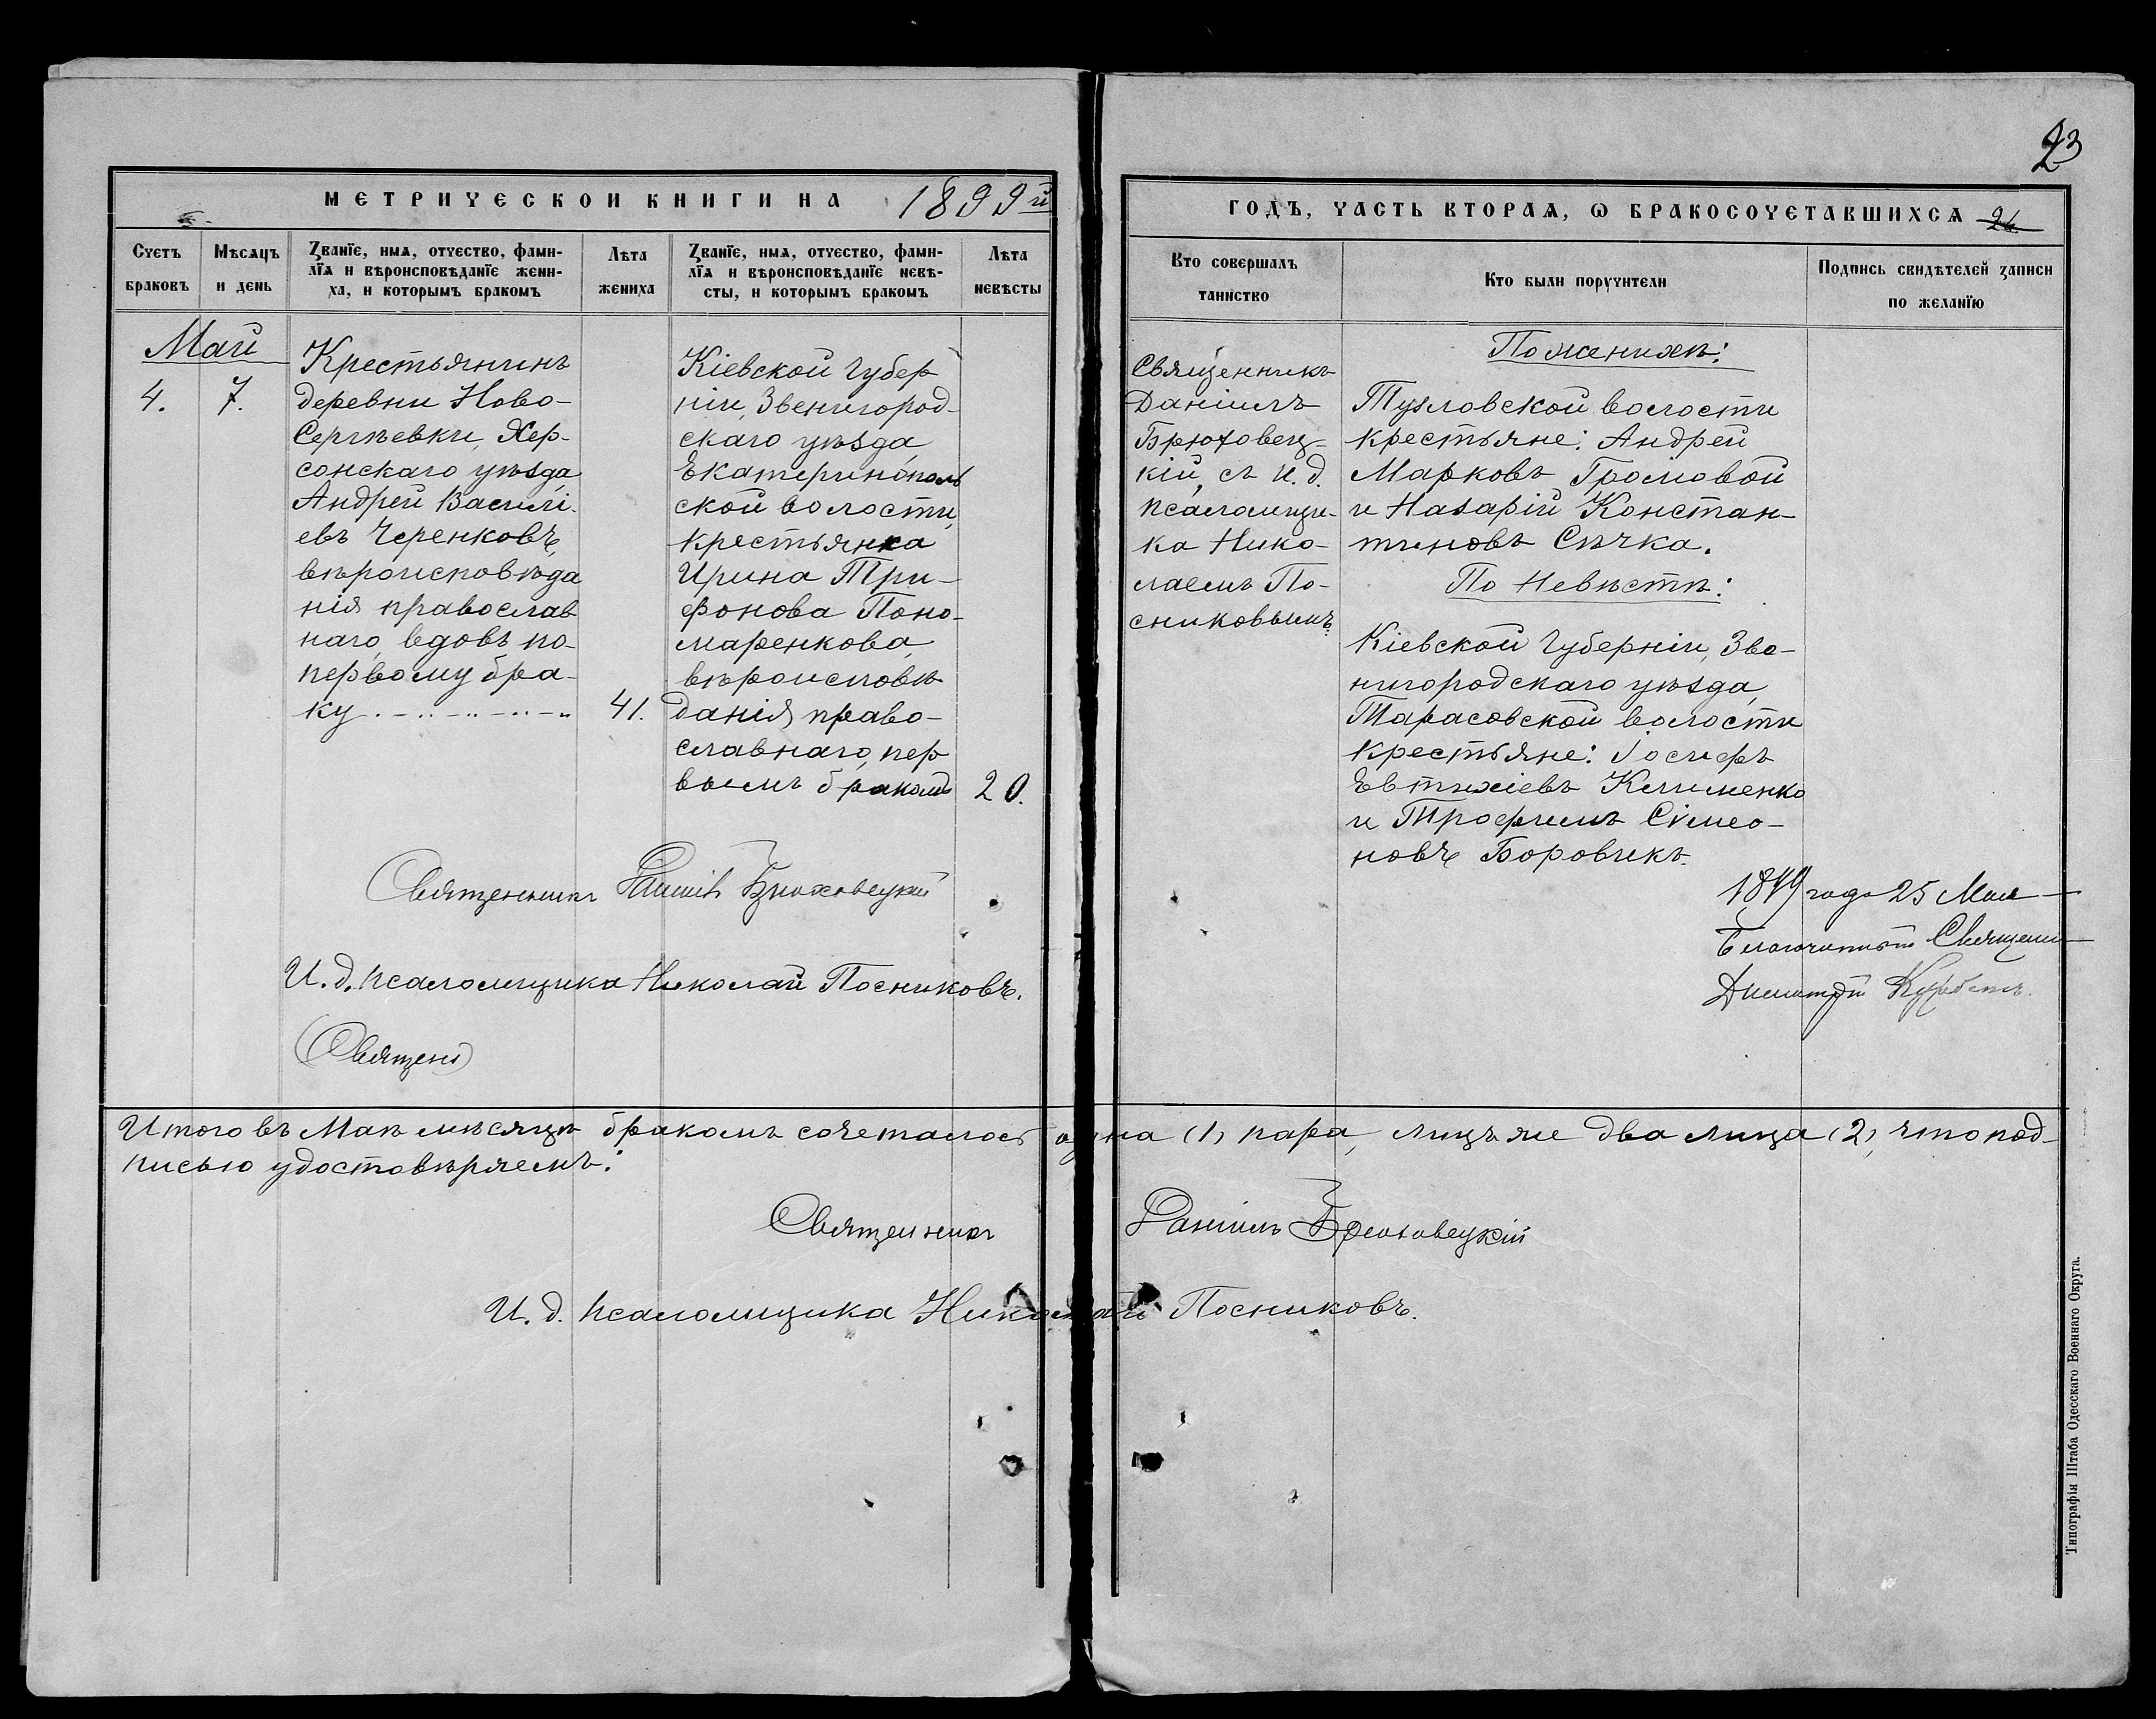 23
МЕТРИЧЕСКОЙ КНИГИ НА 1899й
ГОДЪ, ЧАСТЬ ВТОРАѦ, Ѡ БРАКОСОЧЕТАВШИХСѦ 24
Счетъ
браковъ
Мѣсѧцъ
и день
Званїе, имѧ, отчество, фами-
лїѧ и вѣроисповѣданїе жени-
ха, и которымъ бракомъ
Лѣта
жениха
Званїе, имѧ, отчество, фами-
лїѧ и вѣроисповѣданїе невѣ-
сты, и которымъ бракомъ
Лѣта
невѣсты
Кто совершалъ
таинство
Кто были поручители
Подпись свидѣтелей записи
по желанїю
Май
4.
7.
Крестьянинъ
деревни Ново-
Сергѣевки, Хер-
сонскаго уѣзда,
Андрей Василі-
евъ Черенковъ,
вѣроисповѣда
нія православ
наго, вдовъ по
первому бра-
ку
41.
Кіевской Губер
ніи, Звенигород-
скаго уѣзда,
Екатеринополь
ской волости,
крестьянка
Ирина Три-
фонова Поно-
маренкова,
вѣроисповѣ
данія право-
славнаго, пер
вымъ бракомъ
20.
Священникъ
Даніилъ
Брюховец-
кій, съ И. д.
псаломщи-
ка Нико-
лаемъ По-
сниковымъ.
По женихѣ:
Тузловской волости
крестьяне: Андрей
Марковъ Громовой
и Назарій Констан-
тиновъ Сѣчка.
По Невѣстѣ:
Кіевской Губерніи, Зве-
нигородскаго уѣзда,
Тарасовской волости
крестьяне: Іосифъ
Евтихіевъ Клименко
и Трофимъ Сѵмео-
новъ Боровикъ.
Священникъ Даніилъ Брюховецкій
И. д. псаломщика Николай Посниковъ.
(Священ)
1899 года 25 Мая
Благочинный Священ
Димитрій
Итого въ Маѣ мѣсяцѣ бракомъ сочеталось одна (1) пара, лицъ же два лица (2), что под-
писью удостовѣряемъ:
Священникъ Даніилъ Брюховецкій
И. д. псаломщика Николай Посниковъ.
Типографія Штаба Одесскаго Военнаго Округа.